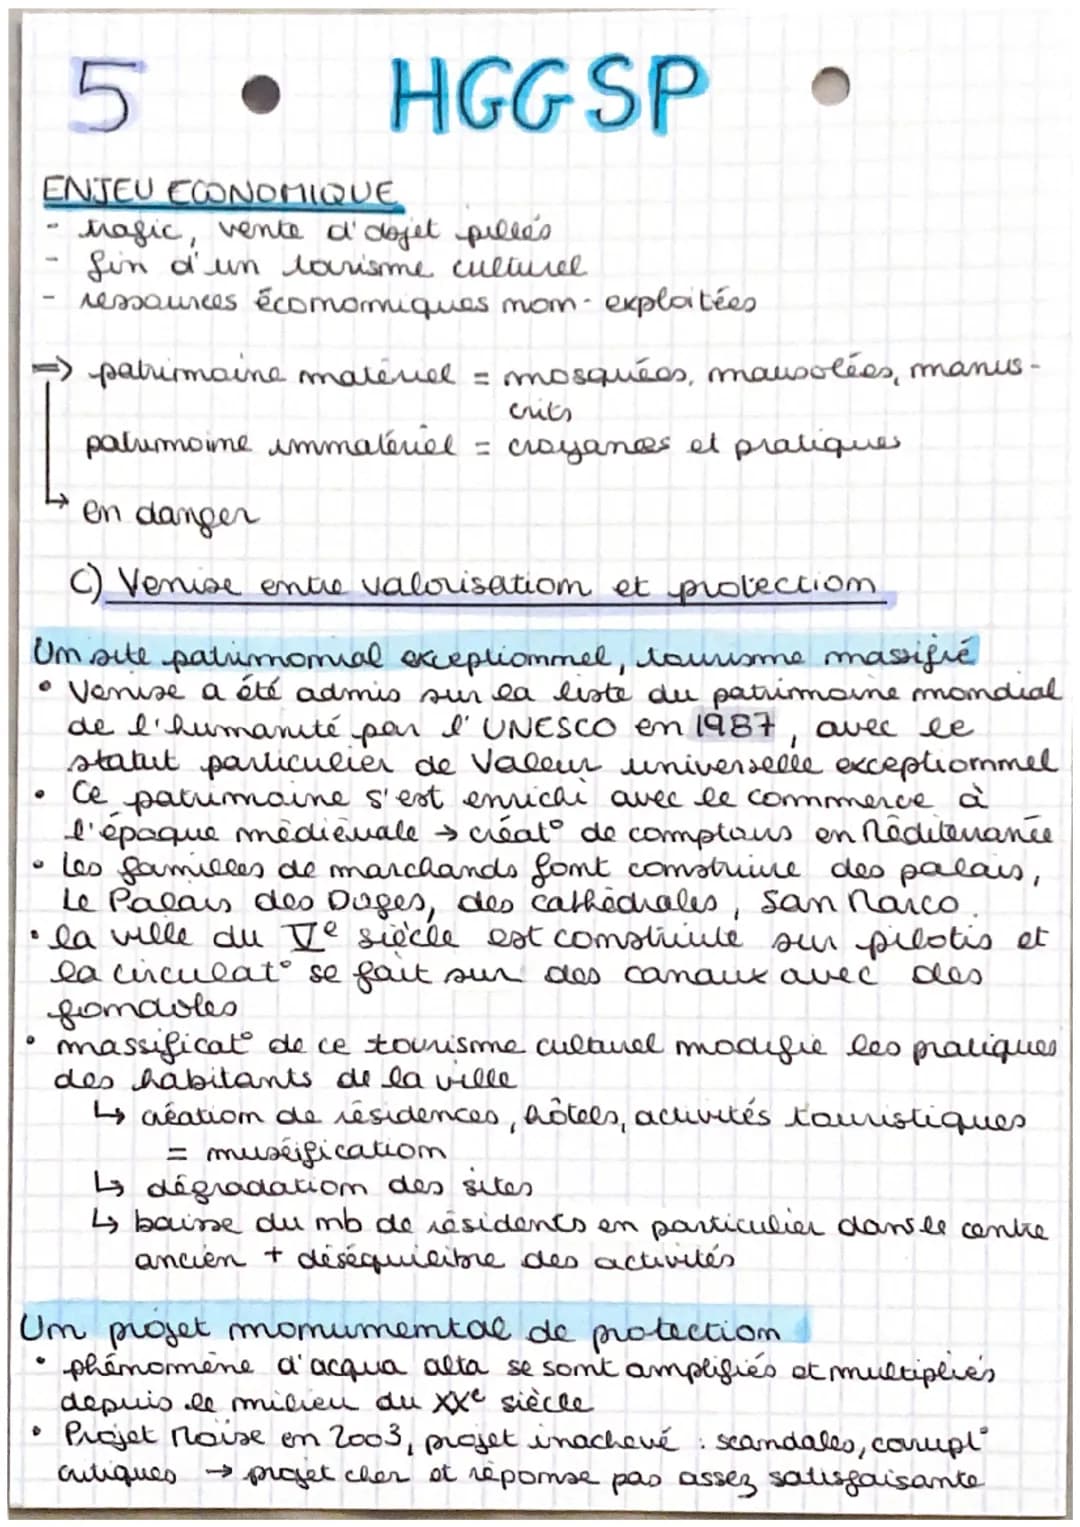 5 • HGGSP •
ENJEU ECONOMIQUE
- trafic, vente d'objet pillés
- fin d'un tourisme culturel
- ressources économiques non-exploitées
=> patrimoine matériel = mosquées, mausolées, manus-
crits
patrimoine immatériel = croyances et pratiques
↳ en danger
C) Venise entre valorisation et protection
Un site patrimonial exceptionnel, tourisme massifié
• Venise a été admis sur la liste du patrimoine mondial
de l'humanité par l'UNESCO en 1987, avec le
statut particulier de Valeur universelle exceptionnel
• Ce patrimoine s'est enrichi avec le commerce à
l'époque médiévale → créat° de comptoirs en Méditerranée
• Les familles de marchands font construire des palais,
Le Palais des Doges, des cathédrales, San Marco.
• la ville du Ve siècle est construite sur pilotis et
la circulat° se fait sur des canaux avec des
gondoles
• massificat° de ce tourisme culturel modifie les pratiques
des habitants de la ville
↳ création de résidences, hôtels, activités touristiques
= muséification
↳ dégradation des sites
↳ baisse du nb de résidents en particulier dans le centre
ancien + déséquilibre des activités
Un projet monumental de protection
• phénomène d'acqua alta se sont amplifiés et multipliés
depuis le milieu du XXe siècle
• Projet Moïse en 2003, projet inachevé : scandales, corrupt°
critiques → projet cher et réponse pas assez satisfaisante